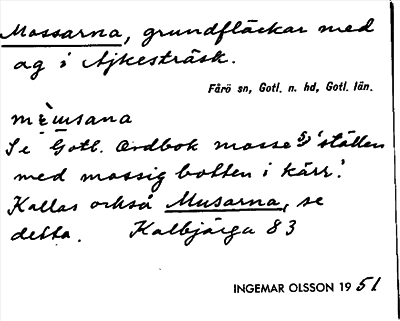 Mossarna, grundfläckar med
ag i Ajkesträsk.
Fårö sn, Gotl. n. hd, Gotl. län.
mèusana
Se Gotl. Ordbok mosse 5) 'ställen
med mossig botten i kärr'.
Kallas också Musarna, se
detta. Kalbjärga 83
INGEMAR OLSSON 1951